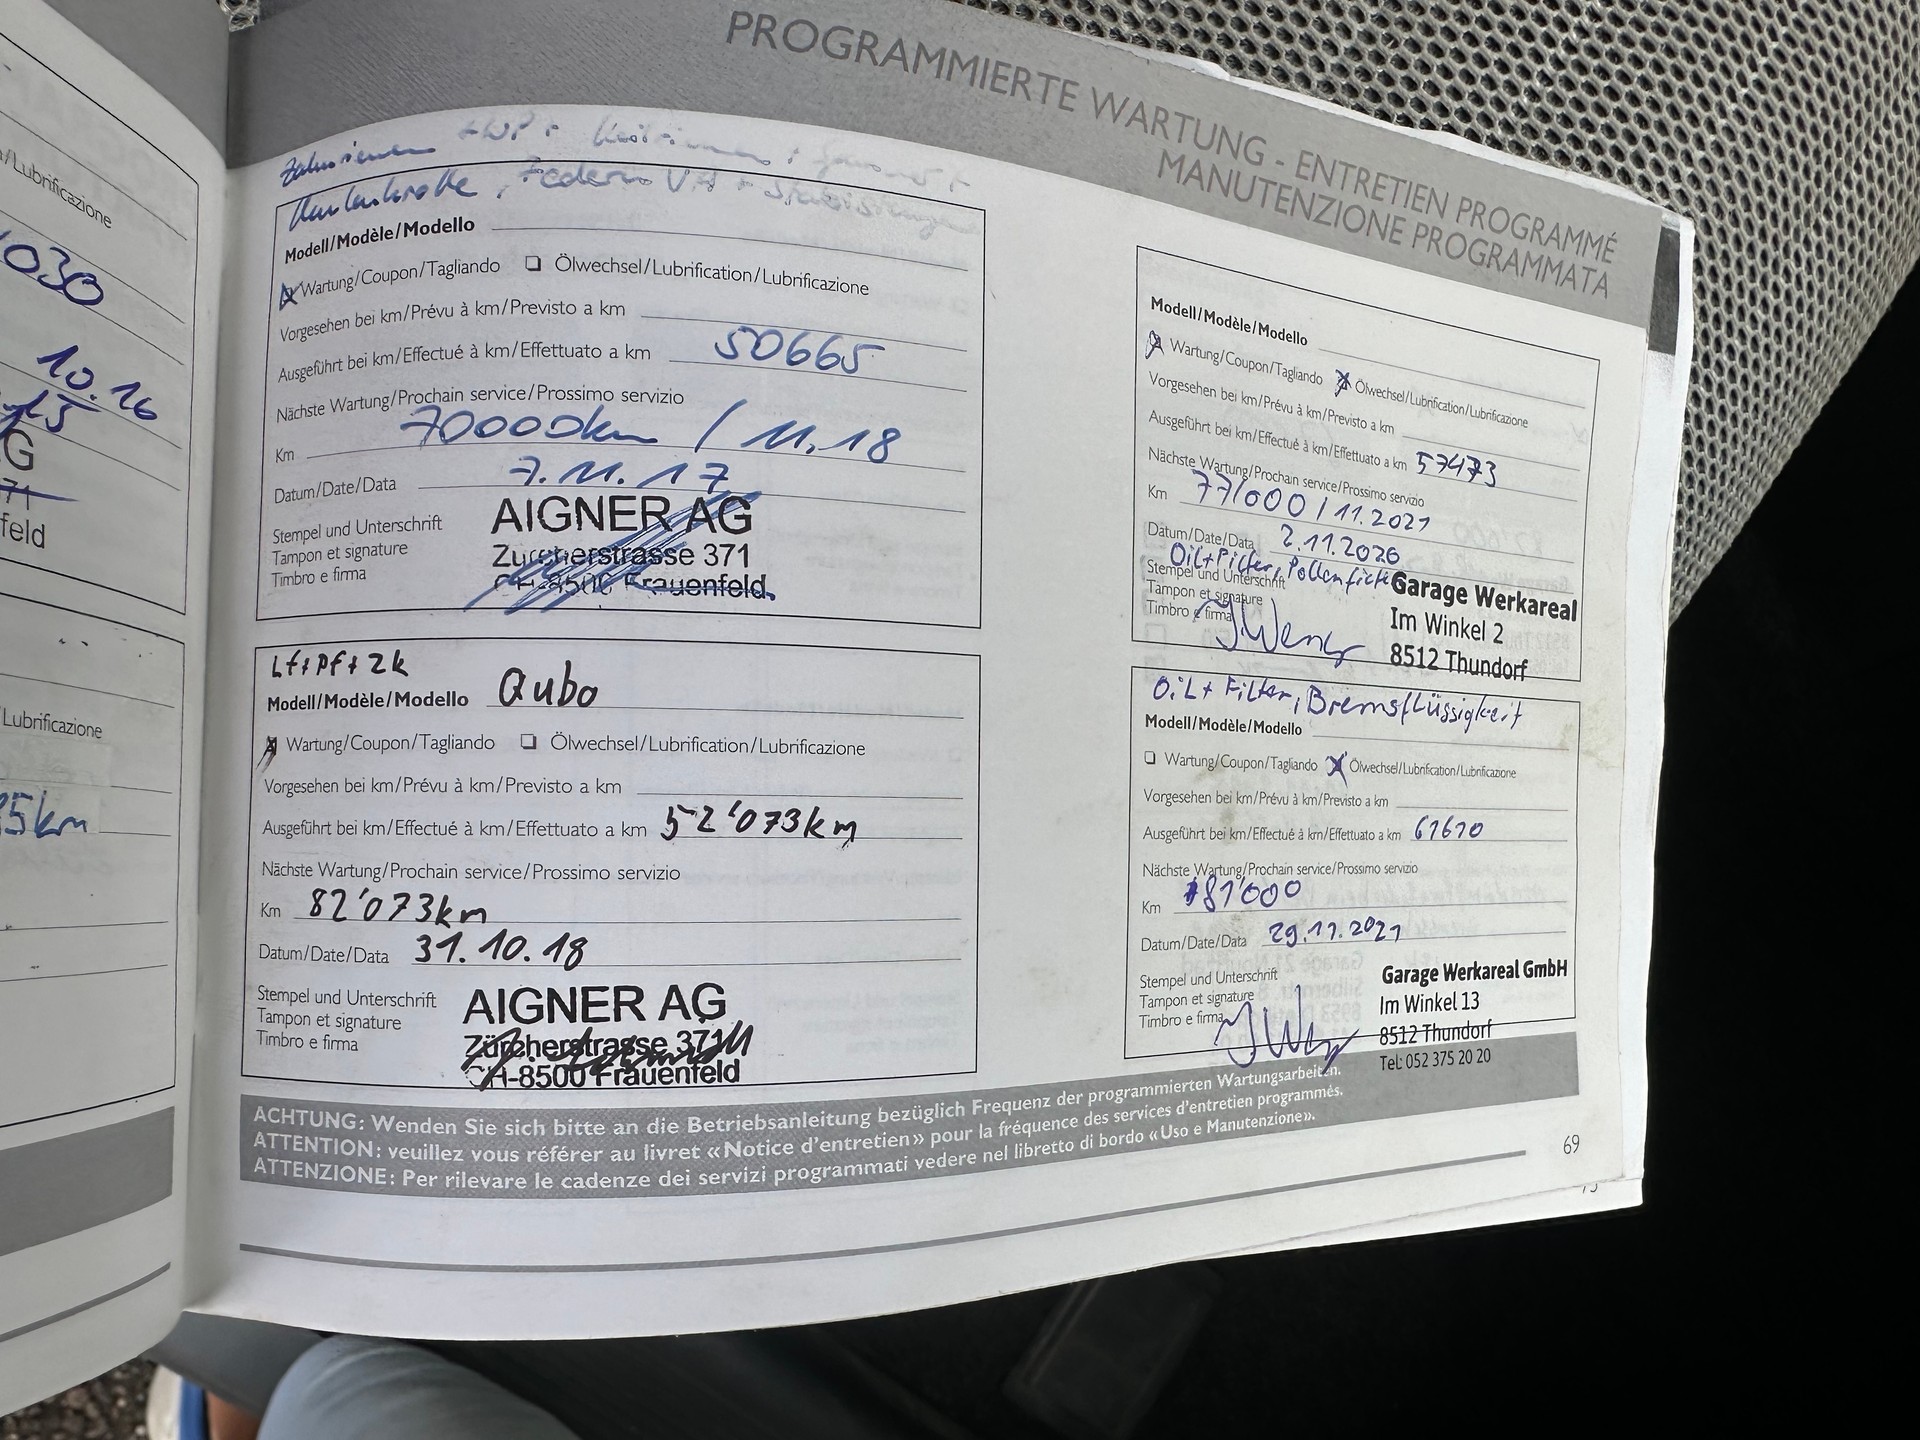 /Lubrificazione
030
10.16
15
G
71
feld
Lubrificazione
5km
PROGRAMMIERTE WARTUNG - ENTRETIEN PROGRAMMÉ
MANUTENZIONE PROGRAMMATA
Zahnriemen
Umlenkrolle, Federn VA +
Modell/Modèle/Modello
Wartung/Coupon/Tagliando ❏ Ölwechsel/Lubrification/Lubrificazione
Vorgesehen bei km/Prévu à km/Previsto a km
Ausgeführt bei km/Effectué à km/Effettuato a km 50665
Nächste Wartung/Prochain service/Prossimo servizio
Km 70000km / 11.18
Datum/Date/Data 7.11.17
Stempel und Unterschrift
Tampon et signature
Timbro e firma
AIGNER AG
Zürcherstrasse 371
CH-8500 Frauenfeld
Lf+Pf+ZK
Modell/Modèle/Modello Qubo
Wartung/Coupon/Tagliando ❏ Ölwechsel/Lubrification/Lubrificazione
Vorgesehen bei km/Prévu à km/Previsto a km
Ausgeführt bei km/Effectué à km/Effettuato a km 52'073km
Nächste Wartung/Prochain service/Prossimo servizio
Km 82'073km
Datum/Date/Data 31.10.18
Stempel und Unterschrift
Tampon et signature
Timbro e firma
AIGNER AG
Zürcherstrasse 371
CH-8500 Frauenfeld
Modell/Modèle/Modello
Wartung/Coupon/Tagliando Ölwechsel/Lubrification/Lubrificazione
Vorgesehen bei km/Prévu à km/Previsto a km
Ausgeführt bei km/Effectué à km/Effettuato a km 57473
Nächste Wartung/Prochain service/Prossimo servizio
Km 77'000 / 11.2021
Datum/Date/Data 2.11.2020
Oil+Filter, Pollenfilter
Stempel und Unterschrift
Tampon et signature
Timbro e firma
Garage Werkareal
Im Winkel 2
8512 Thundorf
Oil + Filter, Bremsflüssigkeit
Modell/Modèle/Modello
❏ Wartung/Coupon/Tagliando Ölwechsel/Lubrification/Lubrificazione
Vorgesehen bei km/Prévu à km/Previsto a km
Ausgeführt bei km/Effectué à km/Effettuato a km 61610
Nächste Wartung/Prochain service/Prossimo servizio
Km 81'000
Datum/Date/Data 29.11.2021
Stempel und Unterschrift
Tampon et signature
Timbro e firma
Garage Werkareal GmbH
Im Winkel 13
8512 Thundorf
Tel: 052 375 20 20
ACHTUNG: Wenden Sie sich bitte an die Betriebsanleitung bezüglich Frequenz der programmierten Wartungsarbeiten.
ATTENTION: veuillez vous référer au livret «Notice d'entretien» pour la fréquence des services d'entretien programmés.
ATTENZIONE: Per rilevare le cadenze dei servizi programmati vedere nel libretto di bordo «Uso e Manutenzione».
69